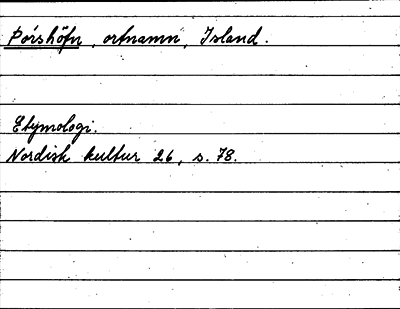 Þórshöfn, ortnamn, Island.
Etymologi.
Nordisk kultur 26, s. 78.